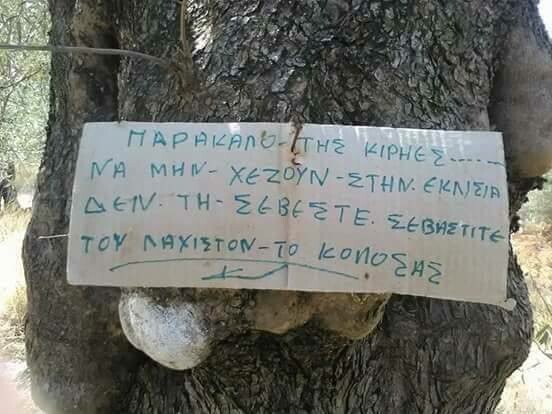 ΠΑΡΑΚΑΛΟ-ΤΗΣ ΚΙΡΗΕΣ.....
ΝΑ ΜΗΝ-ΧΕΖΟΥΝ-ΣΤΗΝ.ΕΚΛΙΣΙΑ
ΔΕΝ.ΤΗ-ΣΕΒΕΣΤΕ.ΣΕΒΑΣΤΙΤΕ
ΤΟΥ ΛΑΧΙΣΤΟΝ-ΤΟ ΚΟΛΟΣΑΣ